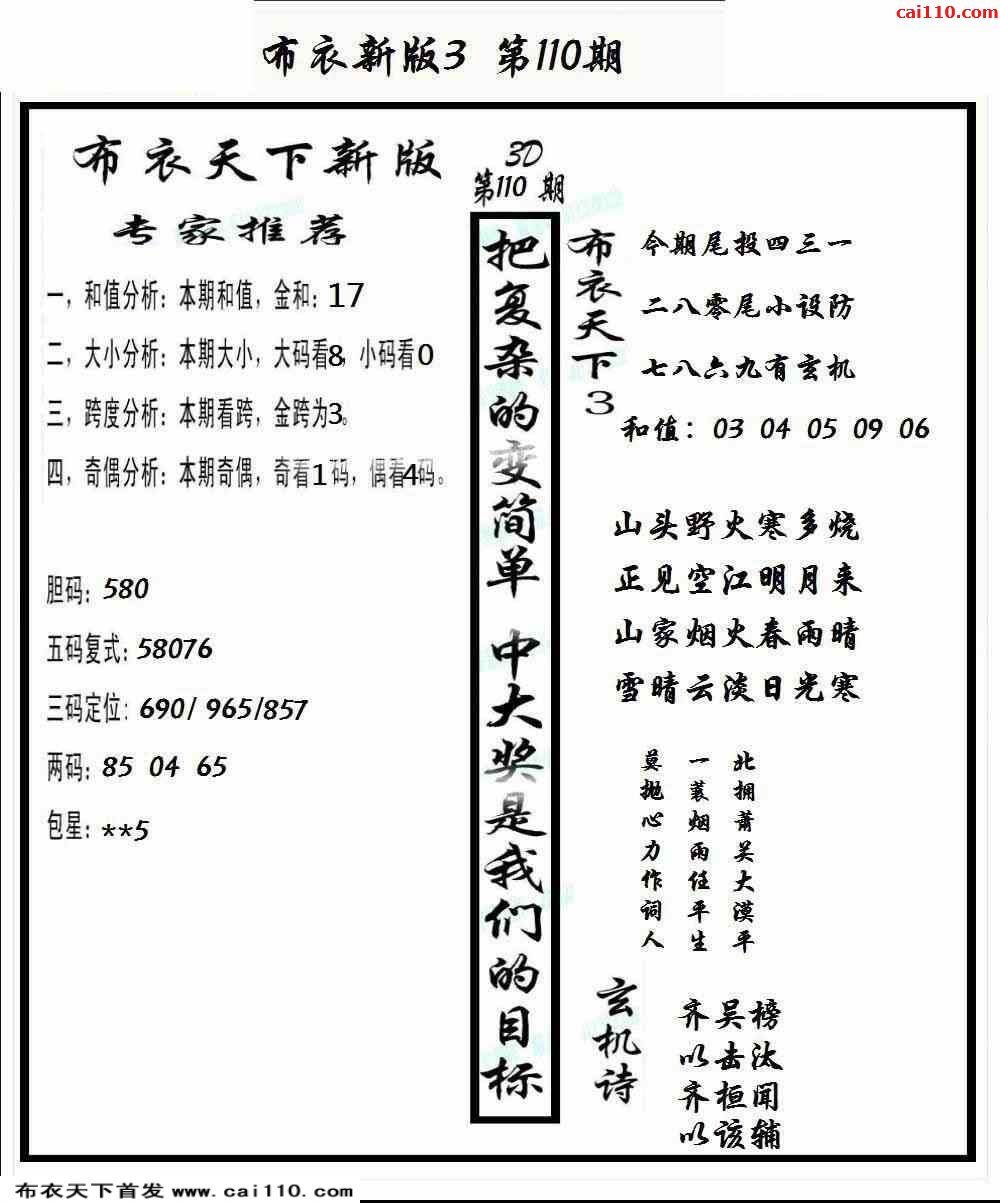 cai110.com
布衣新版3 第110期
布衣天下新版
专家推荐
一，和值分析：本期和值，金和：17
二，大小分析：本期大小，大码看8，小码看0
三，跨度分析：本期看跨，金跨为3。
四，奇偶分析：本期奇偶，奇看1码，偶看4码。
胆码：580
五码复式：58076
三码定位：690/ 965/857
两码：85 04 65
包星：**5
3D
第110 期
把复杂的变简单 中大奖是我们的目标
布衣天下3
今期尾投四三一
二八零尾小设防
七八六九有玄机
和值： 03 04 05 09 06
山头野火寒多烧
正见空江明月来
山家烟火春雨晴
雪晴云淡日光寒
北拥萧关大漠平
一蓑烟雨任平生
莫抛心力作词人
玄机诗
齐吴榜
以击汰
齐桓闻
以该辅
布衣天下首发 www.cai110.com